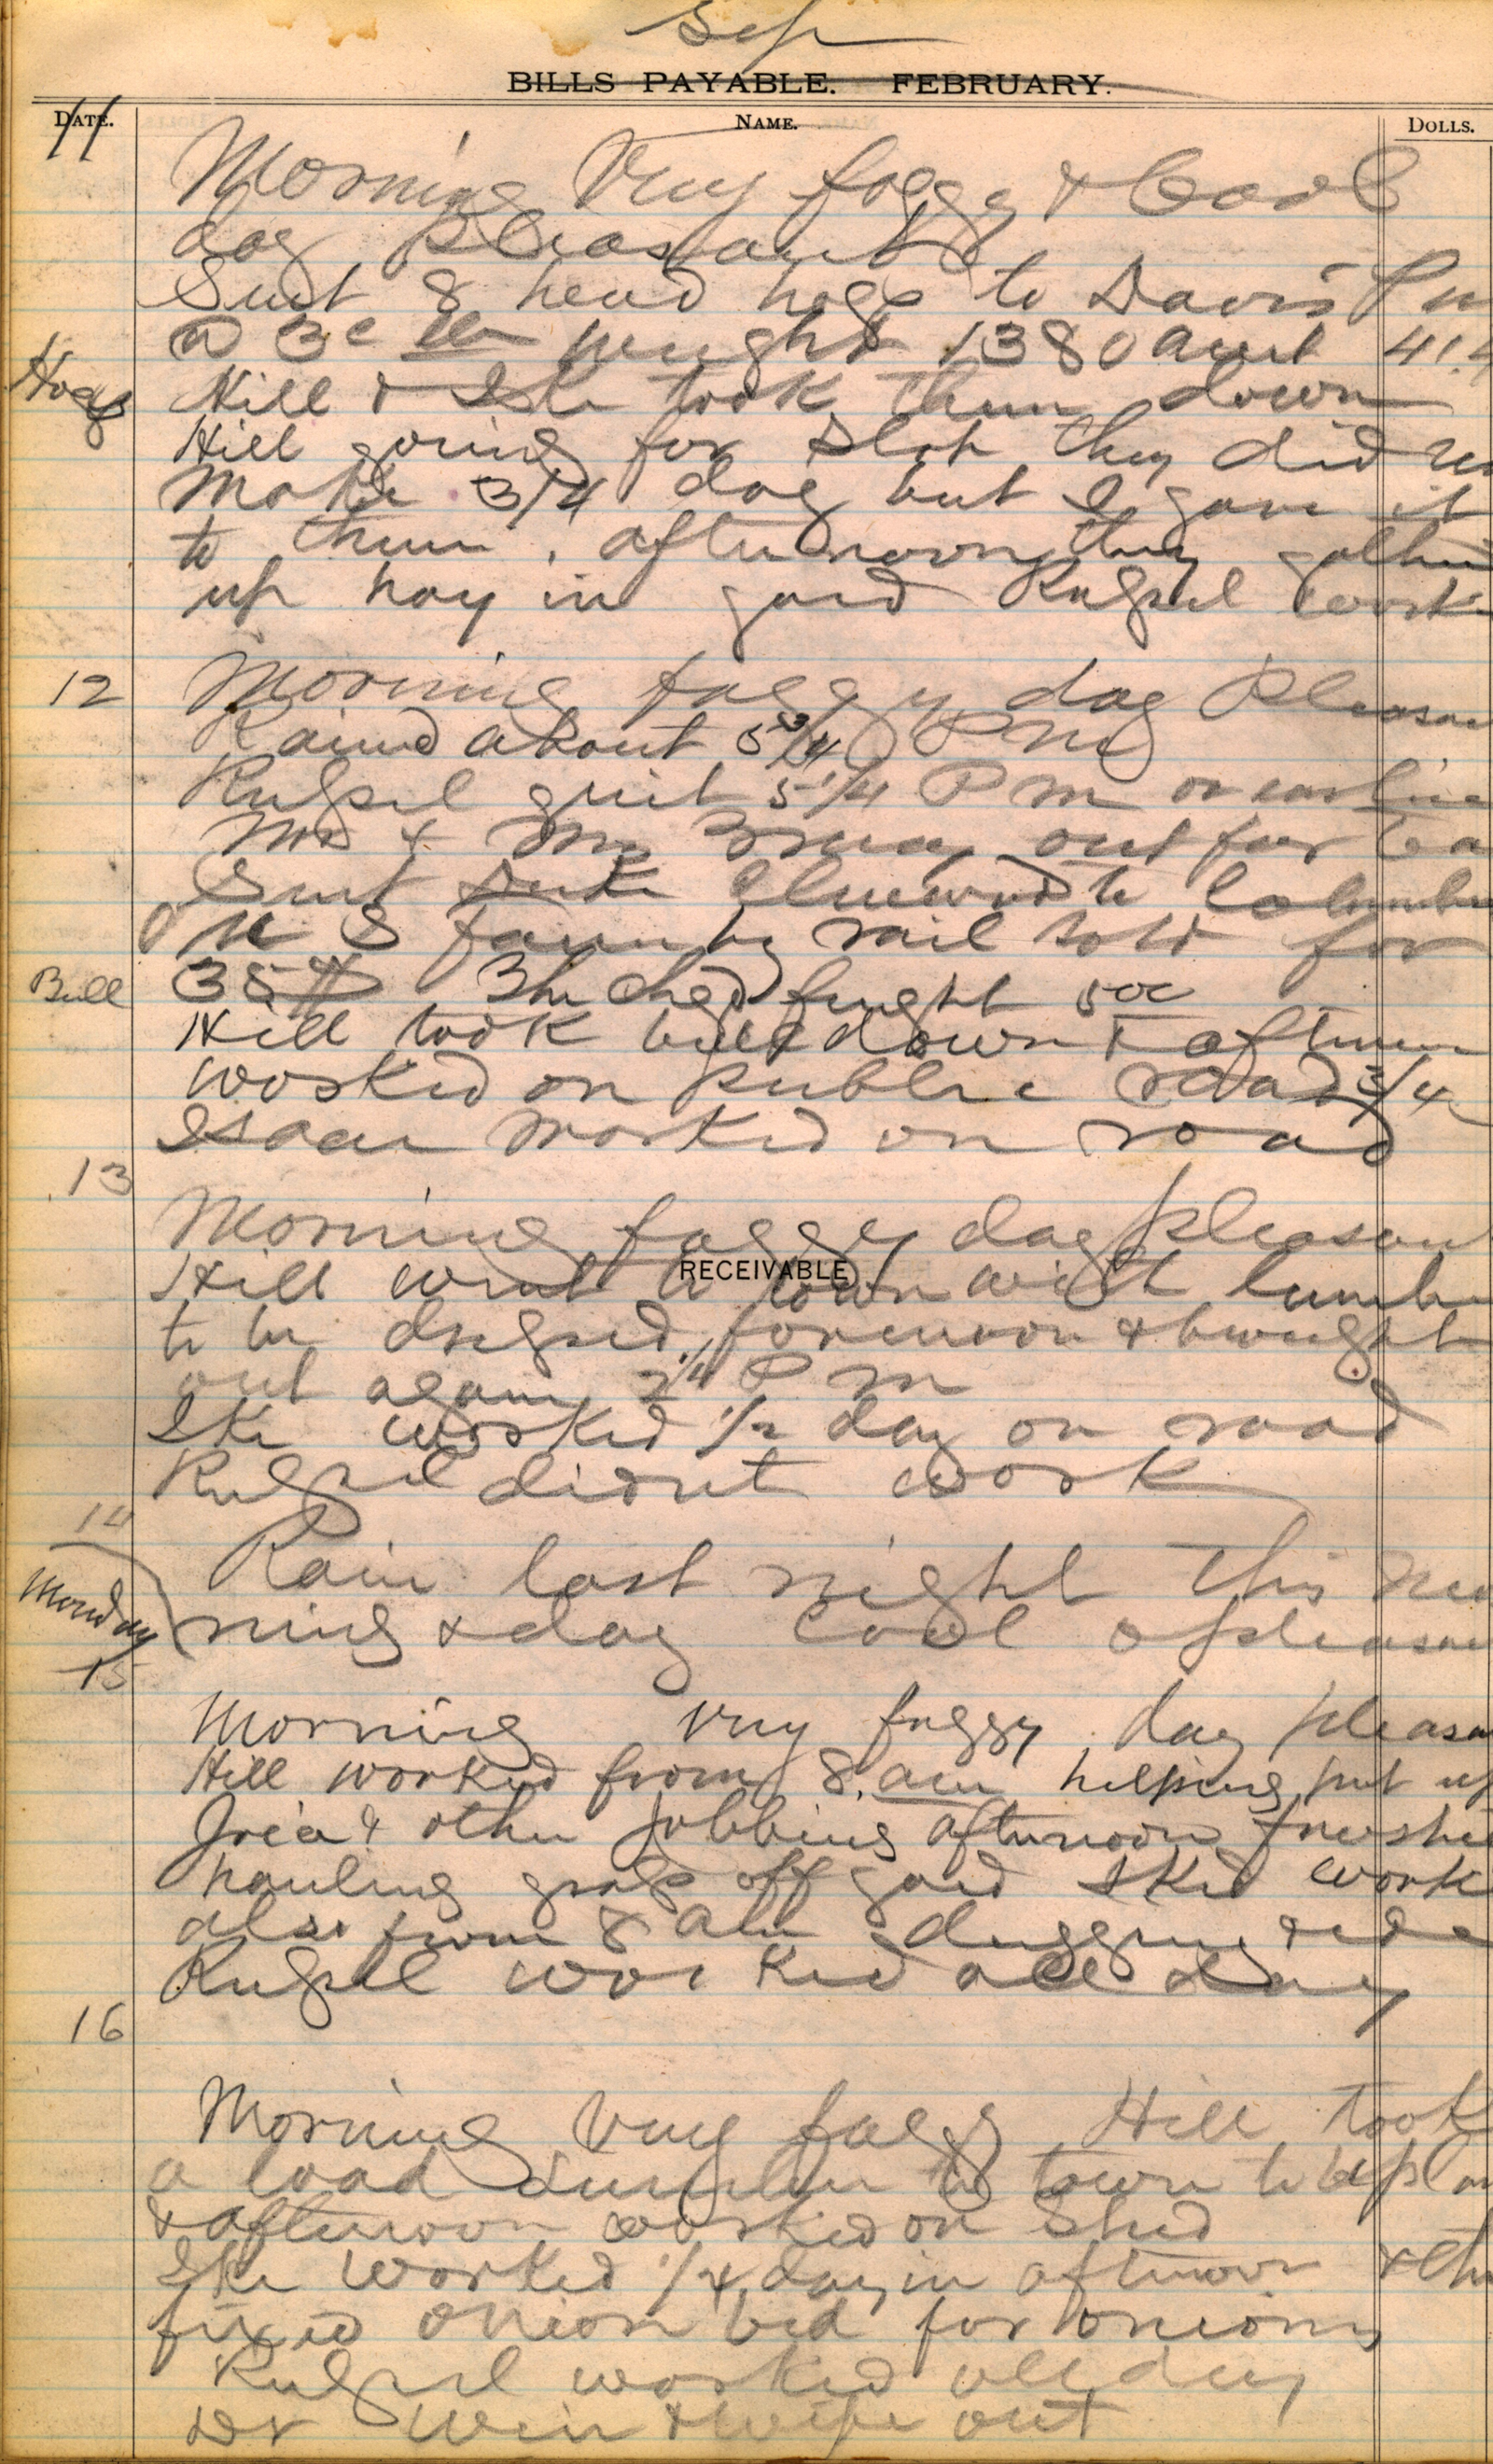 Sep
BILLS PAYABLE. FEBRUARY.
DATE. NAME. DOLLS.
11
Morning Very foggy & Cool
day pleasant
Sent 8 head hogs to Davis
@ 3c lb weight 1380 amt 41.4
Hogs Hill & Ike took them down
Hill going for slop they did
make 3/4 day but I gave it
to them. afternoon they
up hay in yard Rulpel work
12 Morning foggy day Pleasan
Rained about 5 3/4 PM
Rulpel quit 5 1/4 PM or earlier
Mr & Mrs out for tea
Sent Duke to Columbu
by rail sold for
Bull 35$ freight 50c
Hill took bull down & afternoon
worked on public road 3/4
Isaac worked on road
13
Morning foggy day pleasant
RECEIVABLE
Hill went to town with lumber
to be forenoon & brought
out again 2 1/4 PM
Ike worked 1/2 day on road
Rulpel didnt work
14
Rain last night This mor
Monday ning & day cool & pleasan
15
Morning very foggy day pleasa
Hill worked from 8. am helping put up
& other jobbing afternoon finishe
hauling grass off yard Ike work
also from 8 am
Rulpel worked all day
16
Morning Very foggy Hill took
a load Lumber to town to be
& afternoon worked on Shed
Ike worked 1/4 day in afternoon & the
fixed onion bed for onions
Rulpel worked all day
Dr & wife out